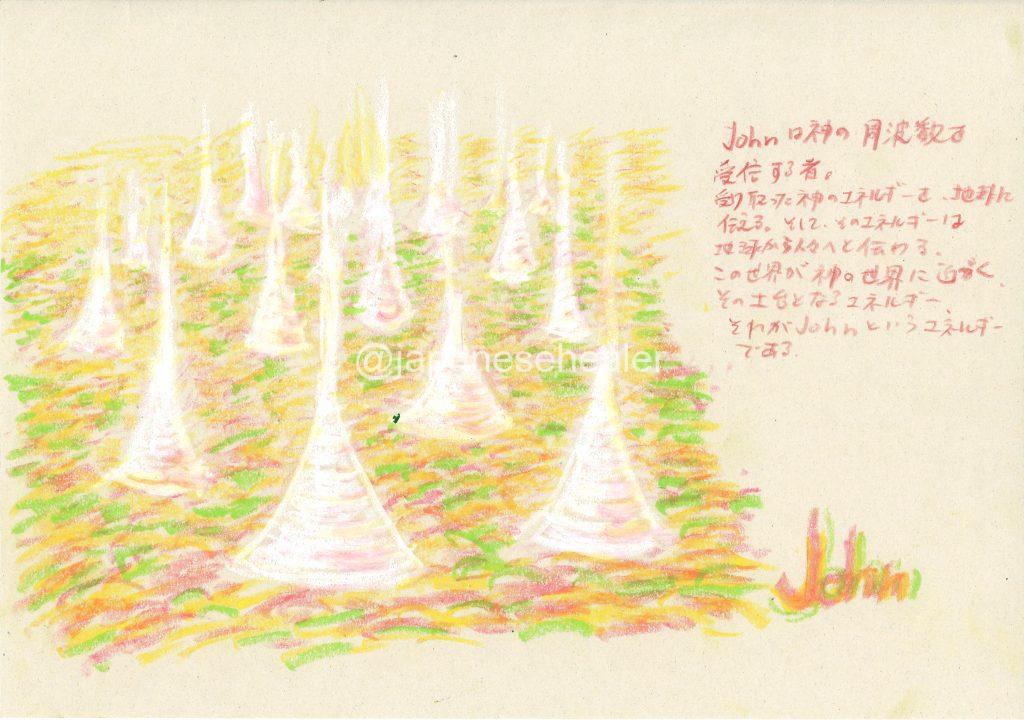 Johnは神の周波数を
受信する者。
受け取った神のエネルギーを、地球に
伝える。そして、そのエネルギーは
地球から人々へと伝わる。
この世界が神の世界に近づく、
その土台となるエネルギー
それがJohnというエネルギー
である.
@japanesehealer
John